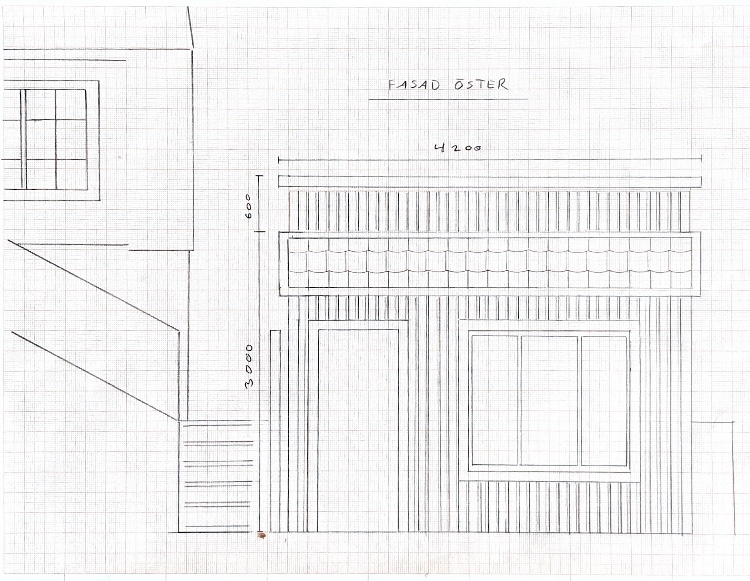 FASAD ÖSTER
4200
600
3000